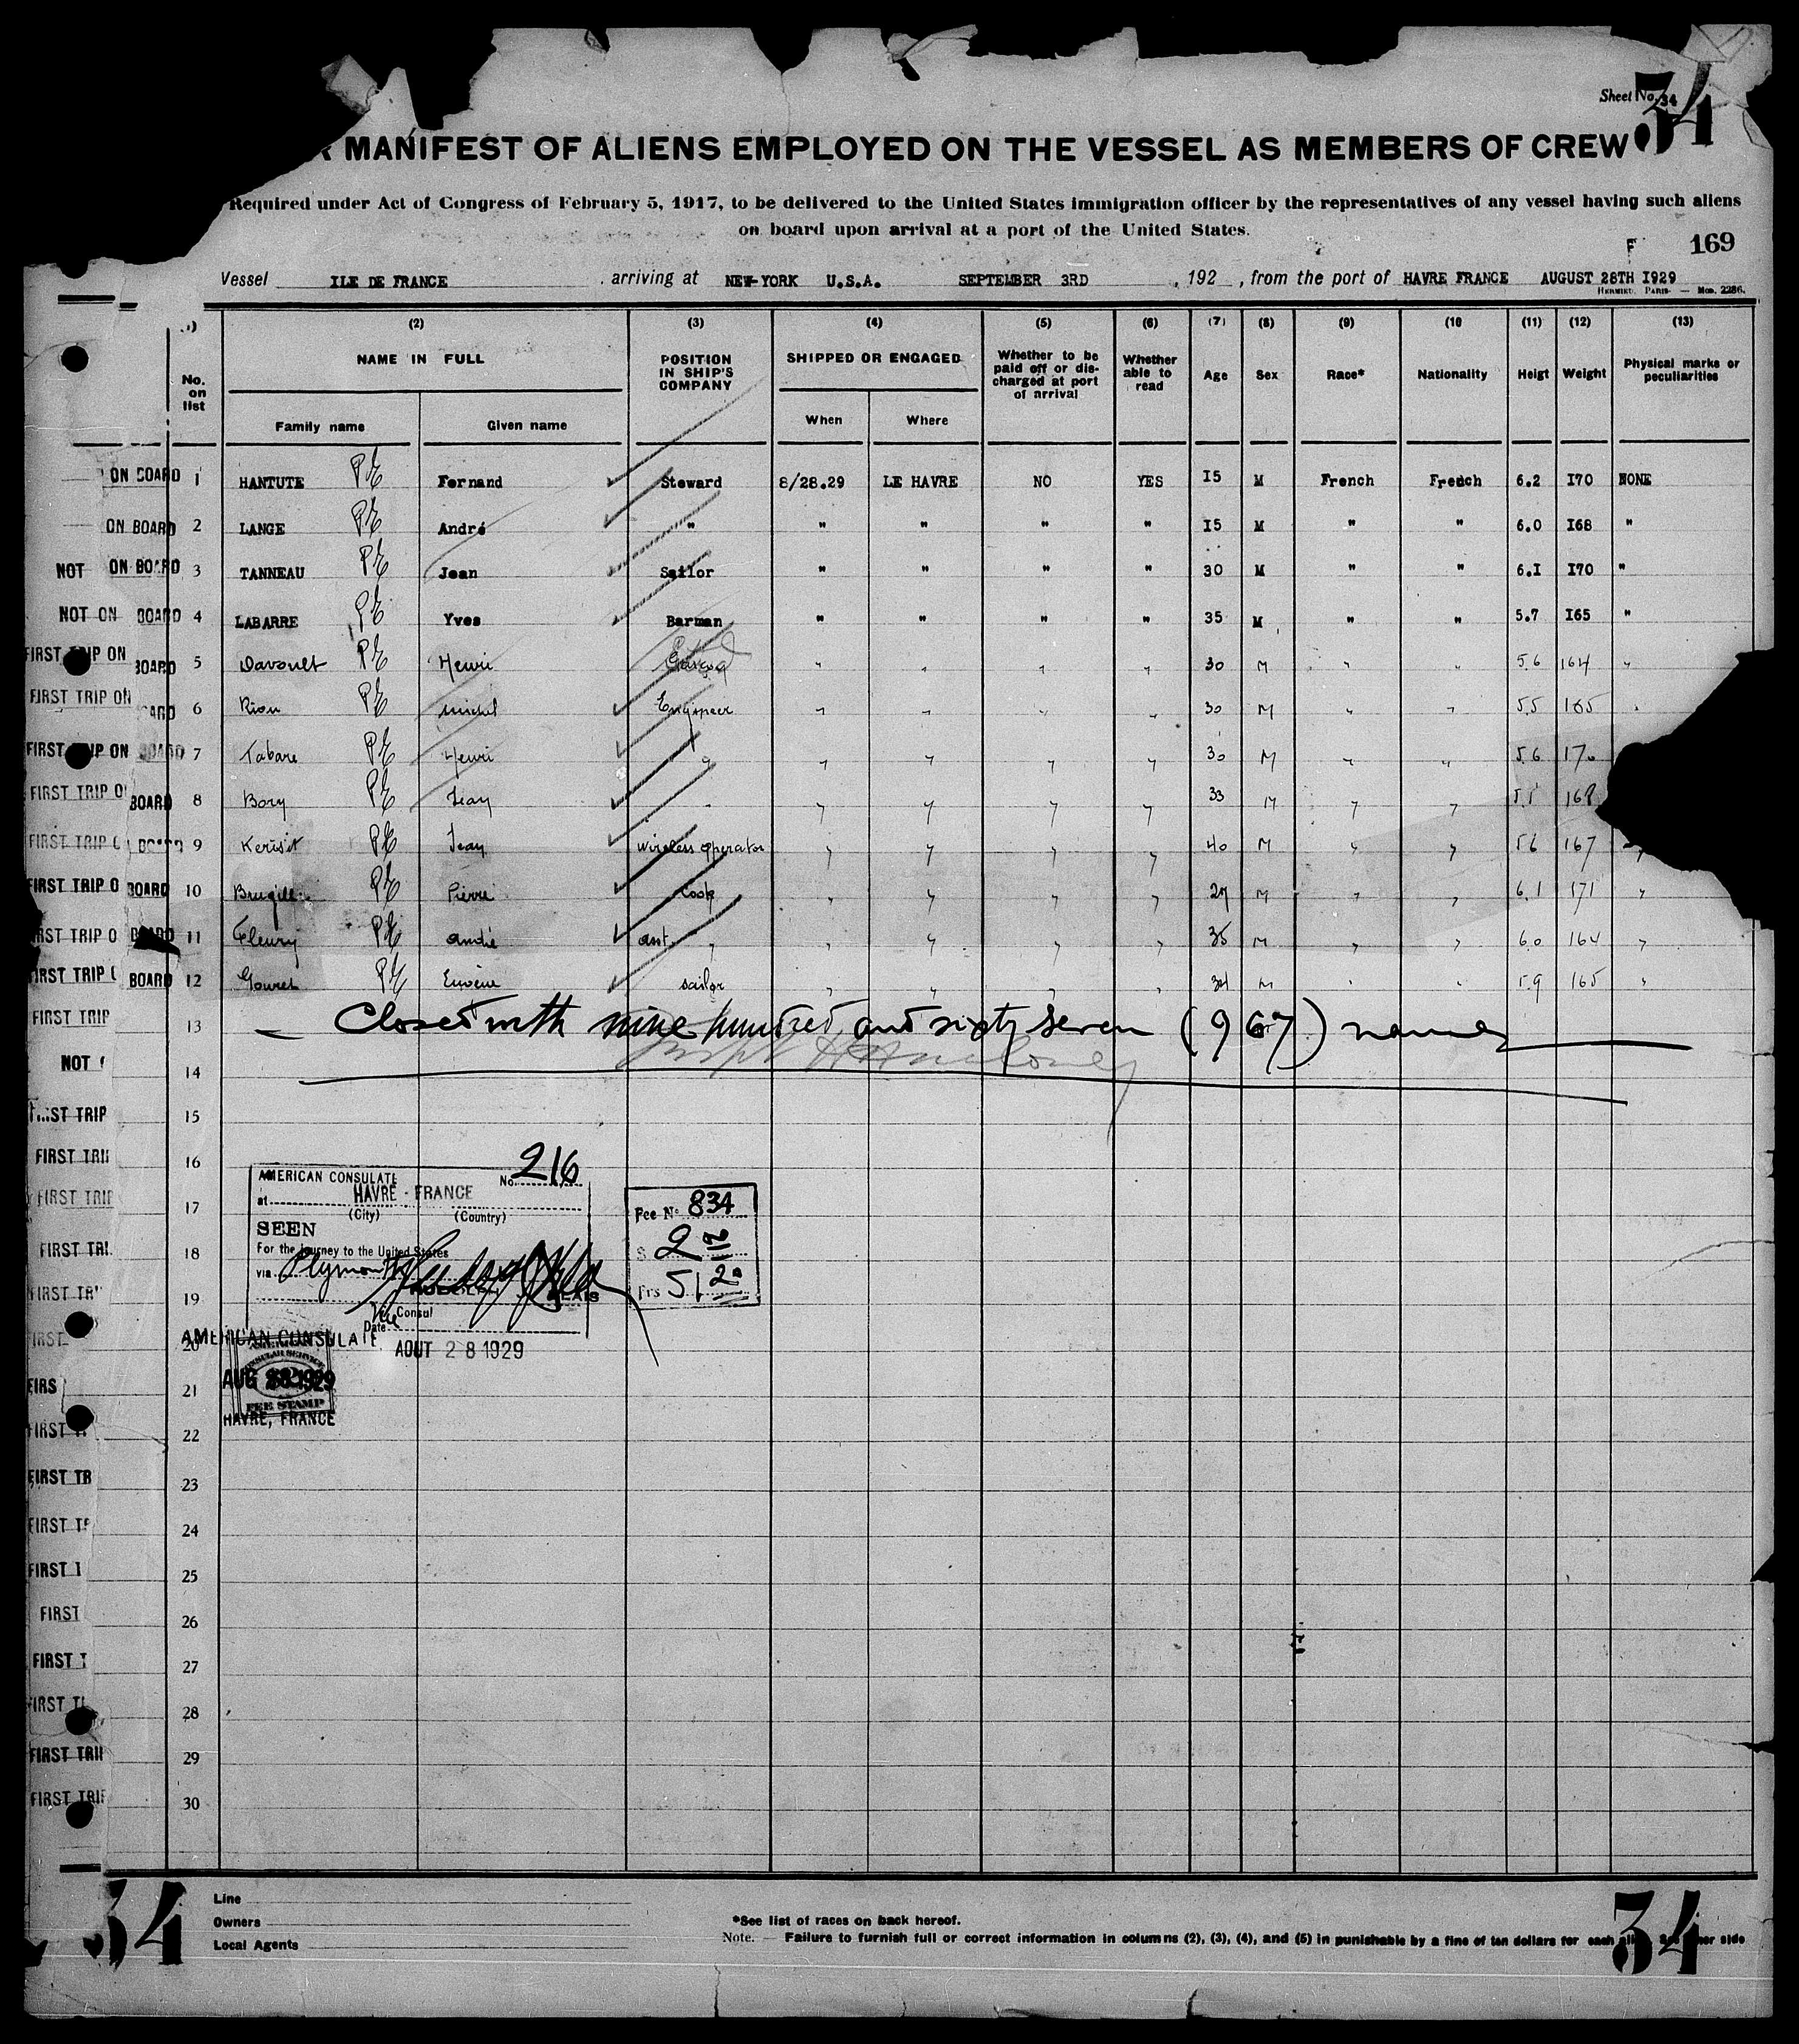 Sheet No. 34
34
R MANIFEST OF ALIENS EMPLOYED ON THE VESSEL AS MEMBERS OF CREW
Required under Act of Congress of February 5, 1917, to be delivered to the United States immigration officer by the representatives of any vessel having such aliens
on board upon arrival at a port of the United States.
F 169
Vessel ILE DE FRANCE , arriving at NEW-YORK U.S.A. SEPTEMBER 3RD , 192 , from the port of HAVRE FRANCE AUGUST 28TH I929
HERMIEU, PARIS — Mod. 2286.
(2) (3) (4) (5) (6) (7) (8) (9) (10 (11) (12) (13)
No. on list NAME IN FULL POSITION IN SHIP'S COMPANY SHIPPED OR ENGAGED Whether to be paid off or discharged at port of arrival Whether able to read Age Sex Race* Nationality Heigt Weight Physical marks or peculiarities
Family name Given name When Where
ON BOARD 1 HANTUTE PE Fernand Steward 8/28.29 LE HAVRE NO YES I5 M French French 6.2 I70 NONE
ON BOARD 2 LANGE PE André " " " " " I5 M " " 6.0 I68 "
NOT ON BOARD 3 TANNEAU PE Jean Sailor " " " " 30 M " " 6.I I70 "
NOT ON BOARD 4 LABARRE PE Yves Barman " " " " 35 M " " 5.7 I65 "
FIRST TRIP ON BOARD 5 Davoult PE Henri " " " " 30 M " " 5.6 164 "
FIRST TRIP ON BOARD 6 Riou PE Michel Engineer " " " " 30 M " " 5.5 165 "
FIRST TRIP ON BOARD 7 Tabare PE Henri " " " " " 30 M " " 5.6 170
FIRST TRIP O BOARD 8 Bory PE Jean " " " " " 33 M " " 168
FIRST TRIP O BOARD 9 Kerisit PE Jean wireless operator " " " " 40 M " " 5.6 167 "
FIRST TRIP O BOARD 10 PE Pierre Cook " " " " 29 M " " 6.1 171 "
FIRST TRIP O BOARD 11 Fleury PE André asst. " " " " " 35 M " " 6.0 164 "
FIRST TRIP BOARD 12 Gouret PE Eugène sailor " " " " 34 M " " 5.9 165 "
FIRST TRIP 13 Closed with nine hundred and sixty seven (967) names
NOT 14
FIRST TRIP 15
FIRST TRI 16
FIRST TRIP 17
FIRST TRI 18
FIRST TRI 19
FIRST 20
FIRS 21
FIRST 22
FIRST TR 23
FIRST T 24
FIRST 25
FIRST 26
FIRST 27
FIRST T 28
FIRST TRI 29
FIRST TRI 30
AMERICAN CONSULATE No. 216
at HAVRE - FRANCE
(City) (Country)
SEEN
For the journey to the United States
via Plymouth
RUDOLPH
Vice Consul
Date AOUT 28 1929
Fee No 834
$ 2
Frs 51 20
AMERICAN CONSULATE
AMERICAN
CONSULAR SERVICE
AUG 28 1929
FEE STAMP
HAVRE, FRANCE
34
Line
Owners
Local Agents
*See list of races on back hereof.
Note. — Failure to furnish full or correct information in columns (2), (3), (4), and (5) in punishable by a fine of ten dollars for each side
34